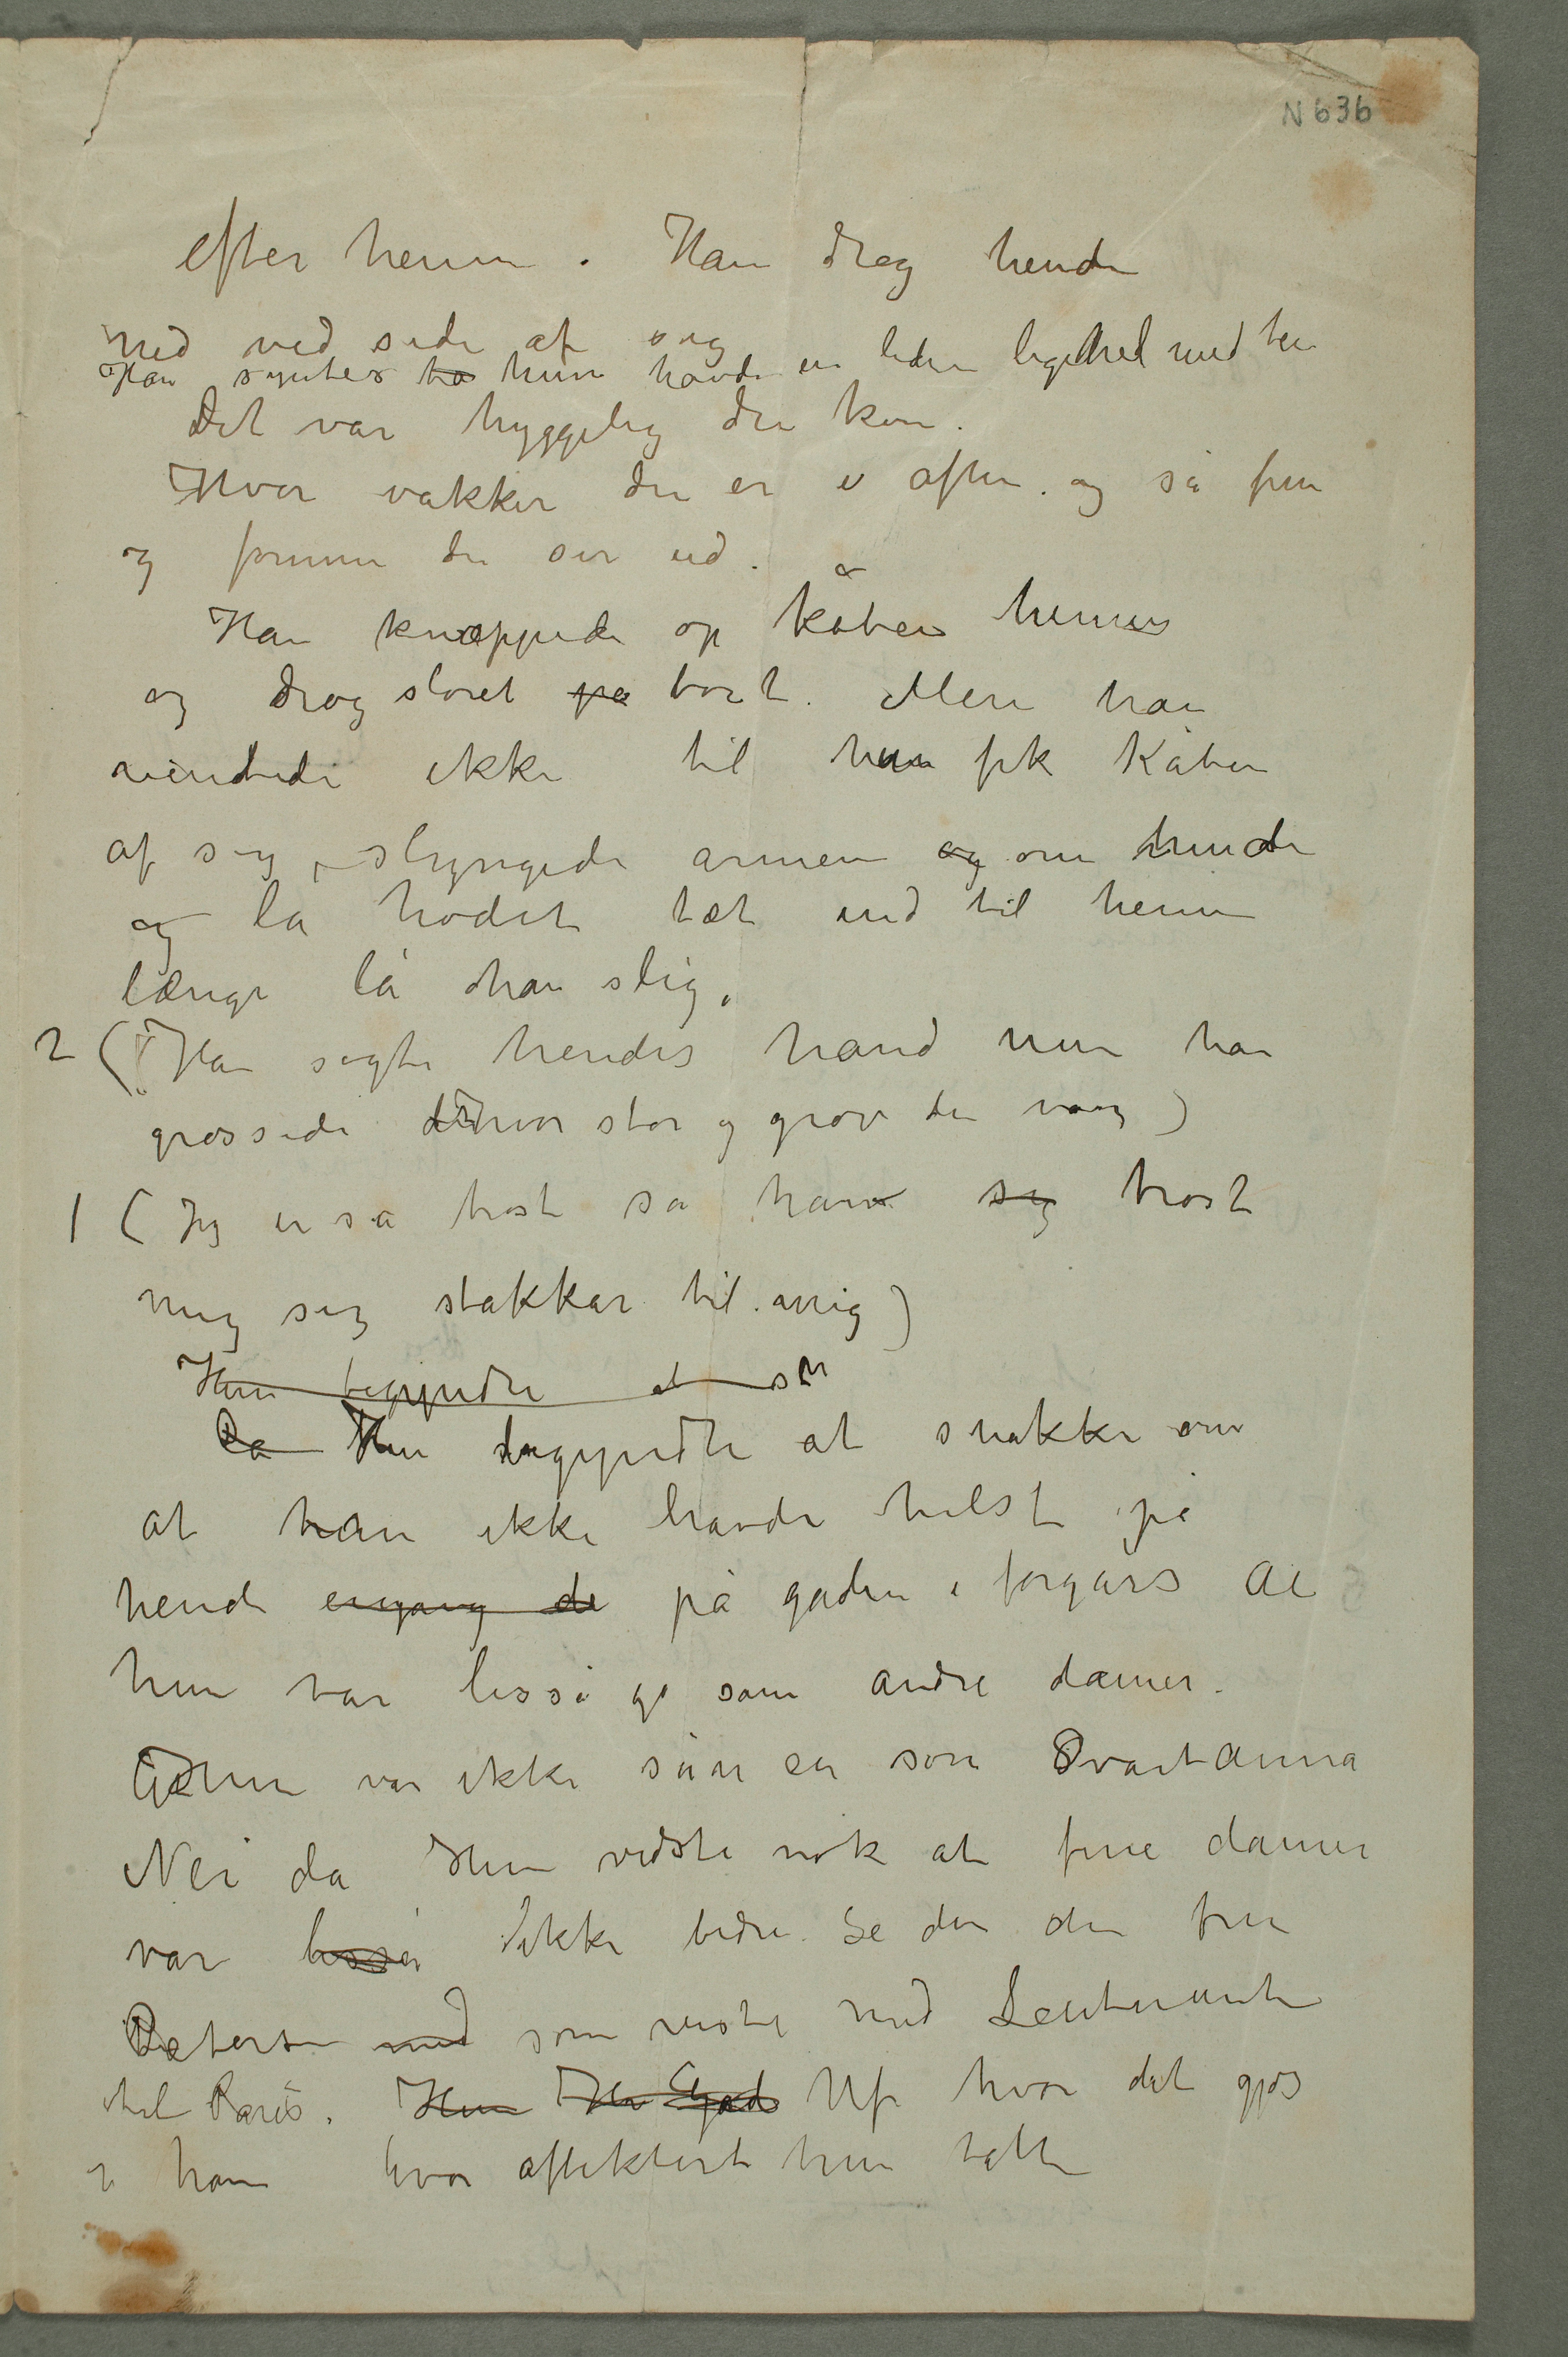 N 636
efter henne. Han drog hende
ned ved side af sig
Han syntes ha hun havde en liden lighed med hen
Det var hyggelig du kom.
Hvor vakker du er i aften. og så fin
og fornem du ser ud.
Han knappede op kåben hennes
og drog sløret på bort. Men han
ventede ikke til hun fik kåben
af sig, slyngede armen og om hende
og la hodet tæt ind til henne
længe lå han slig.
2 (Han søgte hendes hånd men han
grøssede hvor stor og grov den var)
1 (Jeg er så trøst sa han sig trøst
mig sig stakkar til mig)
Hun begyndte at sn
Da Hun begyndte at snakke om
at han ikke havde hilst på
hende engang de på gaden i forgårs At
hun var lisså go som andre damer.
Hun var ikke sån en som Svartanna
Nei da Hun vidste nok at fine damer
var lisså ikke bedre. Se den den fru
Petersen med som reiste med Leutnanten
til Paris. Hun Han Gad Uf hvor det gøs
i ham hvor affektert hun talte